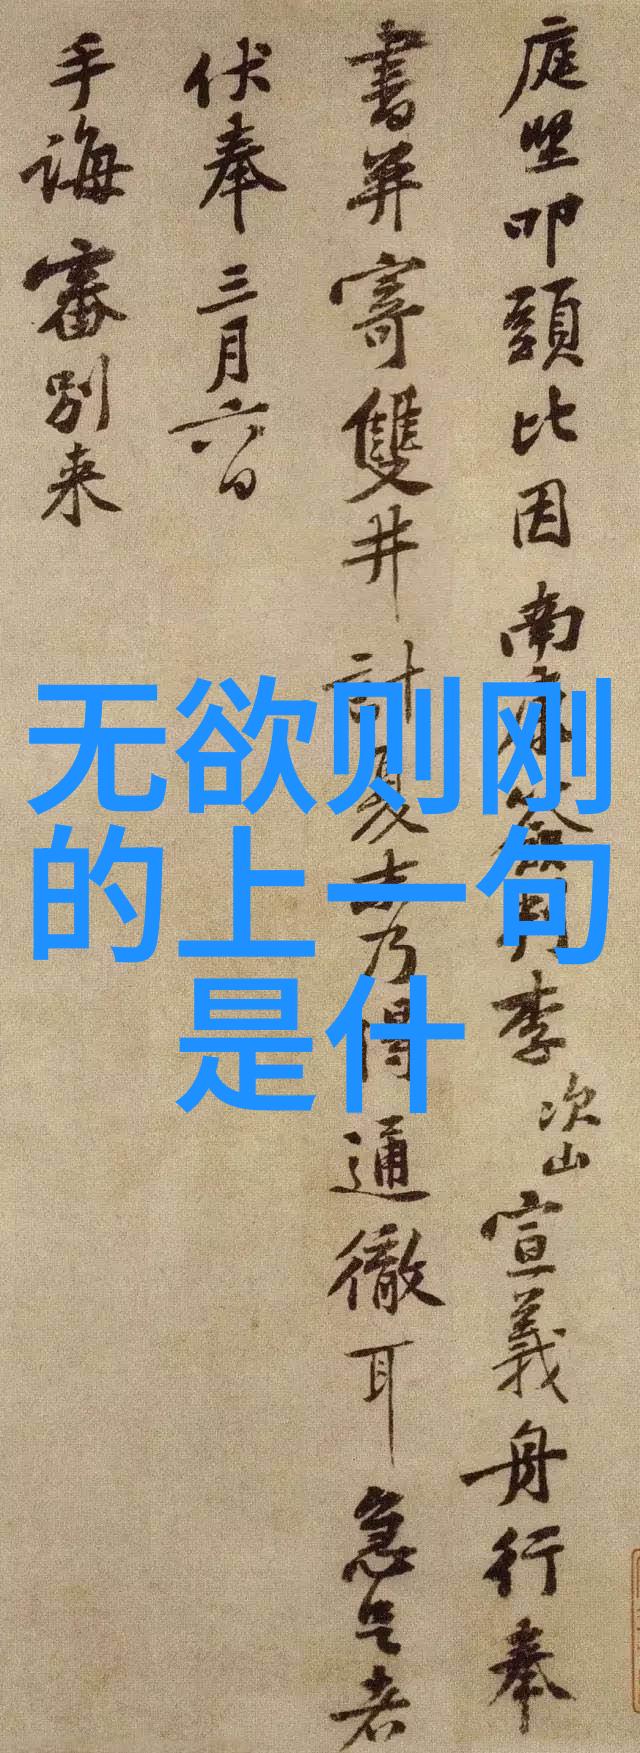 庭堅叩頭比因南康簽判李次山宣義舟行奉
書并寄雙井計夏末乃得通徹耳急足者
伏奉三月六日
手誨審別来
无欲则刚
的上一句
是什